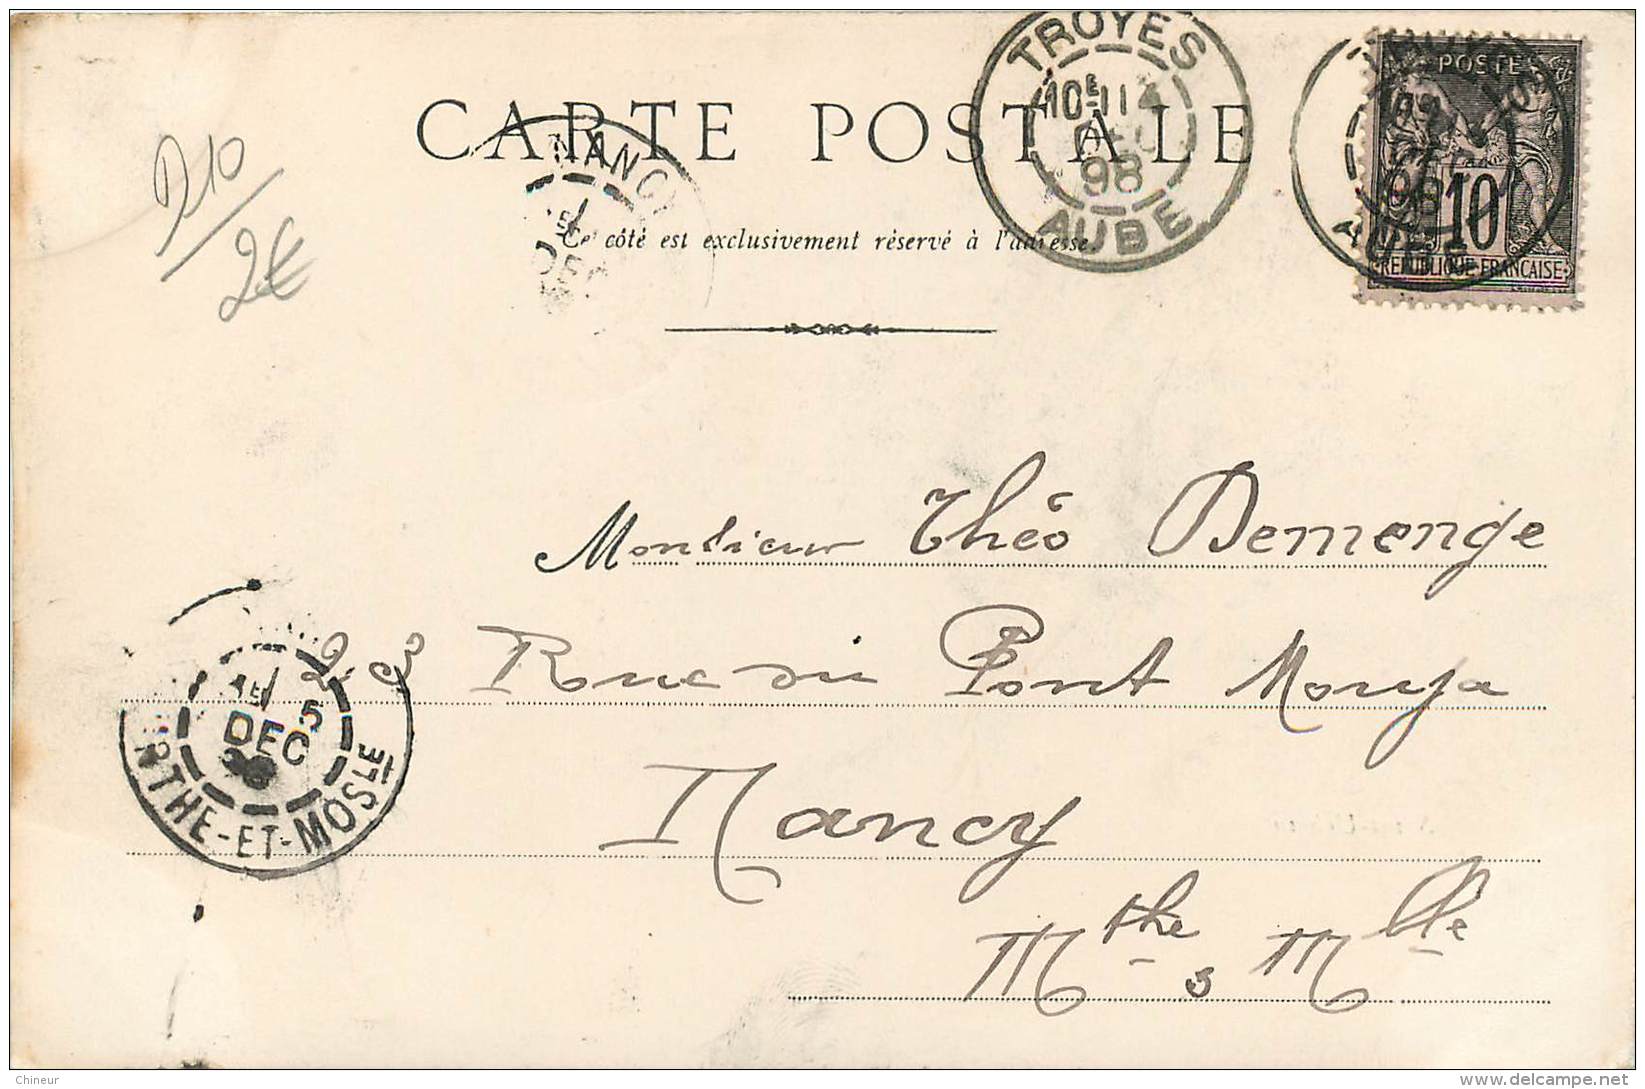 CARTE POSTALE
TROYES
10E 4
DEC
98
AUBE
POSTE
10
REPUBLIQUE FRANCAISE
AUBE
NANCY
DEC
Ce côté est exclusivement réservé à l'adresse.
D10
2€
Monsieur Théo Demenge
Rue du Pont Mouja
Nancy
Mthe s Mlle
5
DEC
RTHE-ET-MOSLE
Chineur
delcampe.net